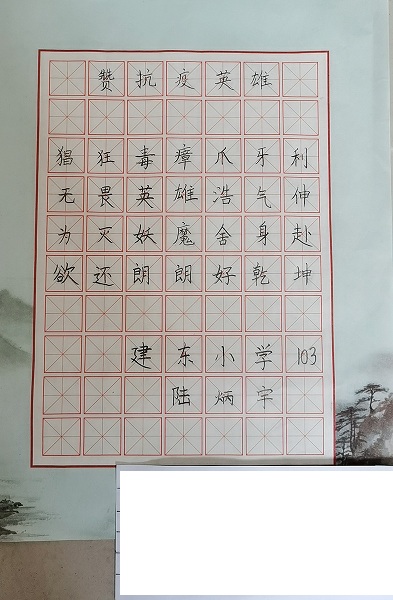 赞抗疫英雄
猖狂毒瘴爪牙利
无畏英雄浩气伸
为灭妖魔舍身赴
欲还朗朗好乾坤
建东小学103
陆炳宇